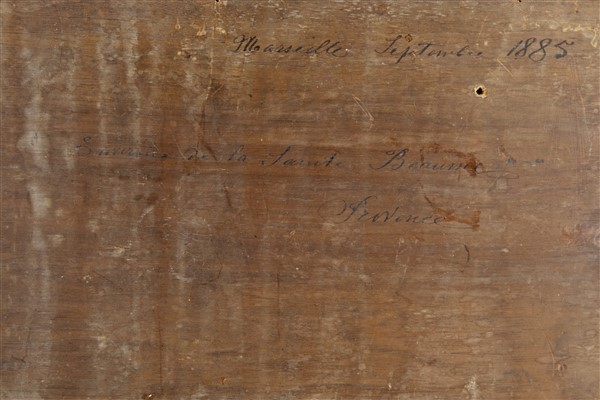 Marseille Septembre 1885
de la Sainte Beaume en
Provence